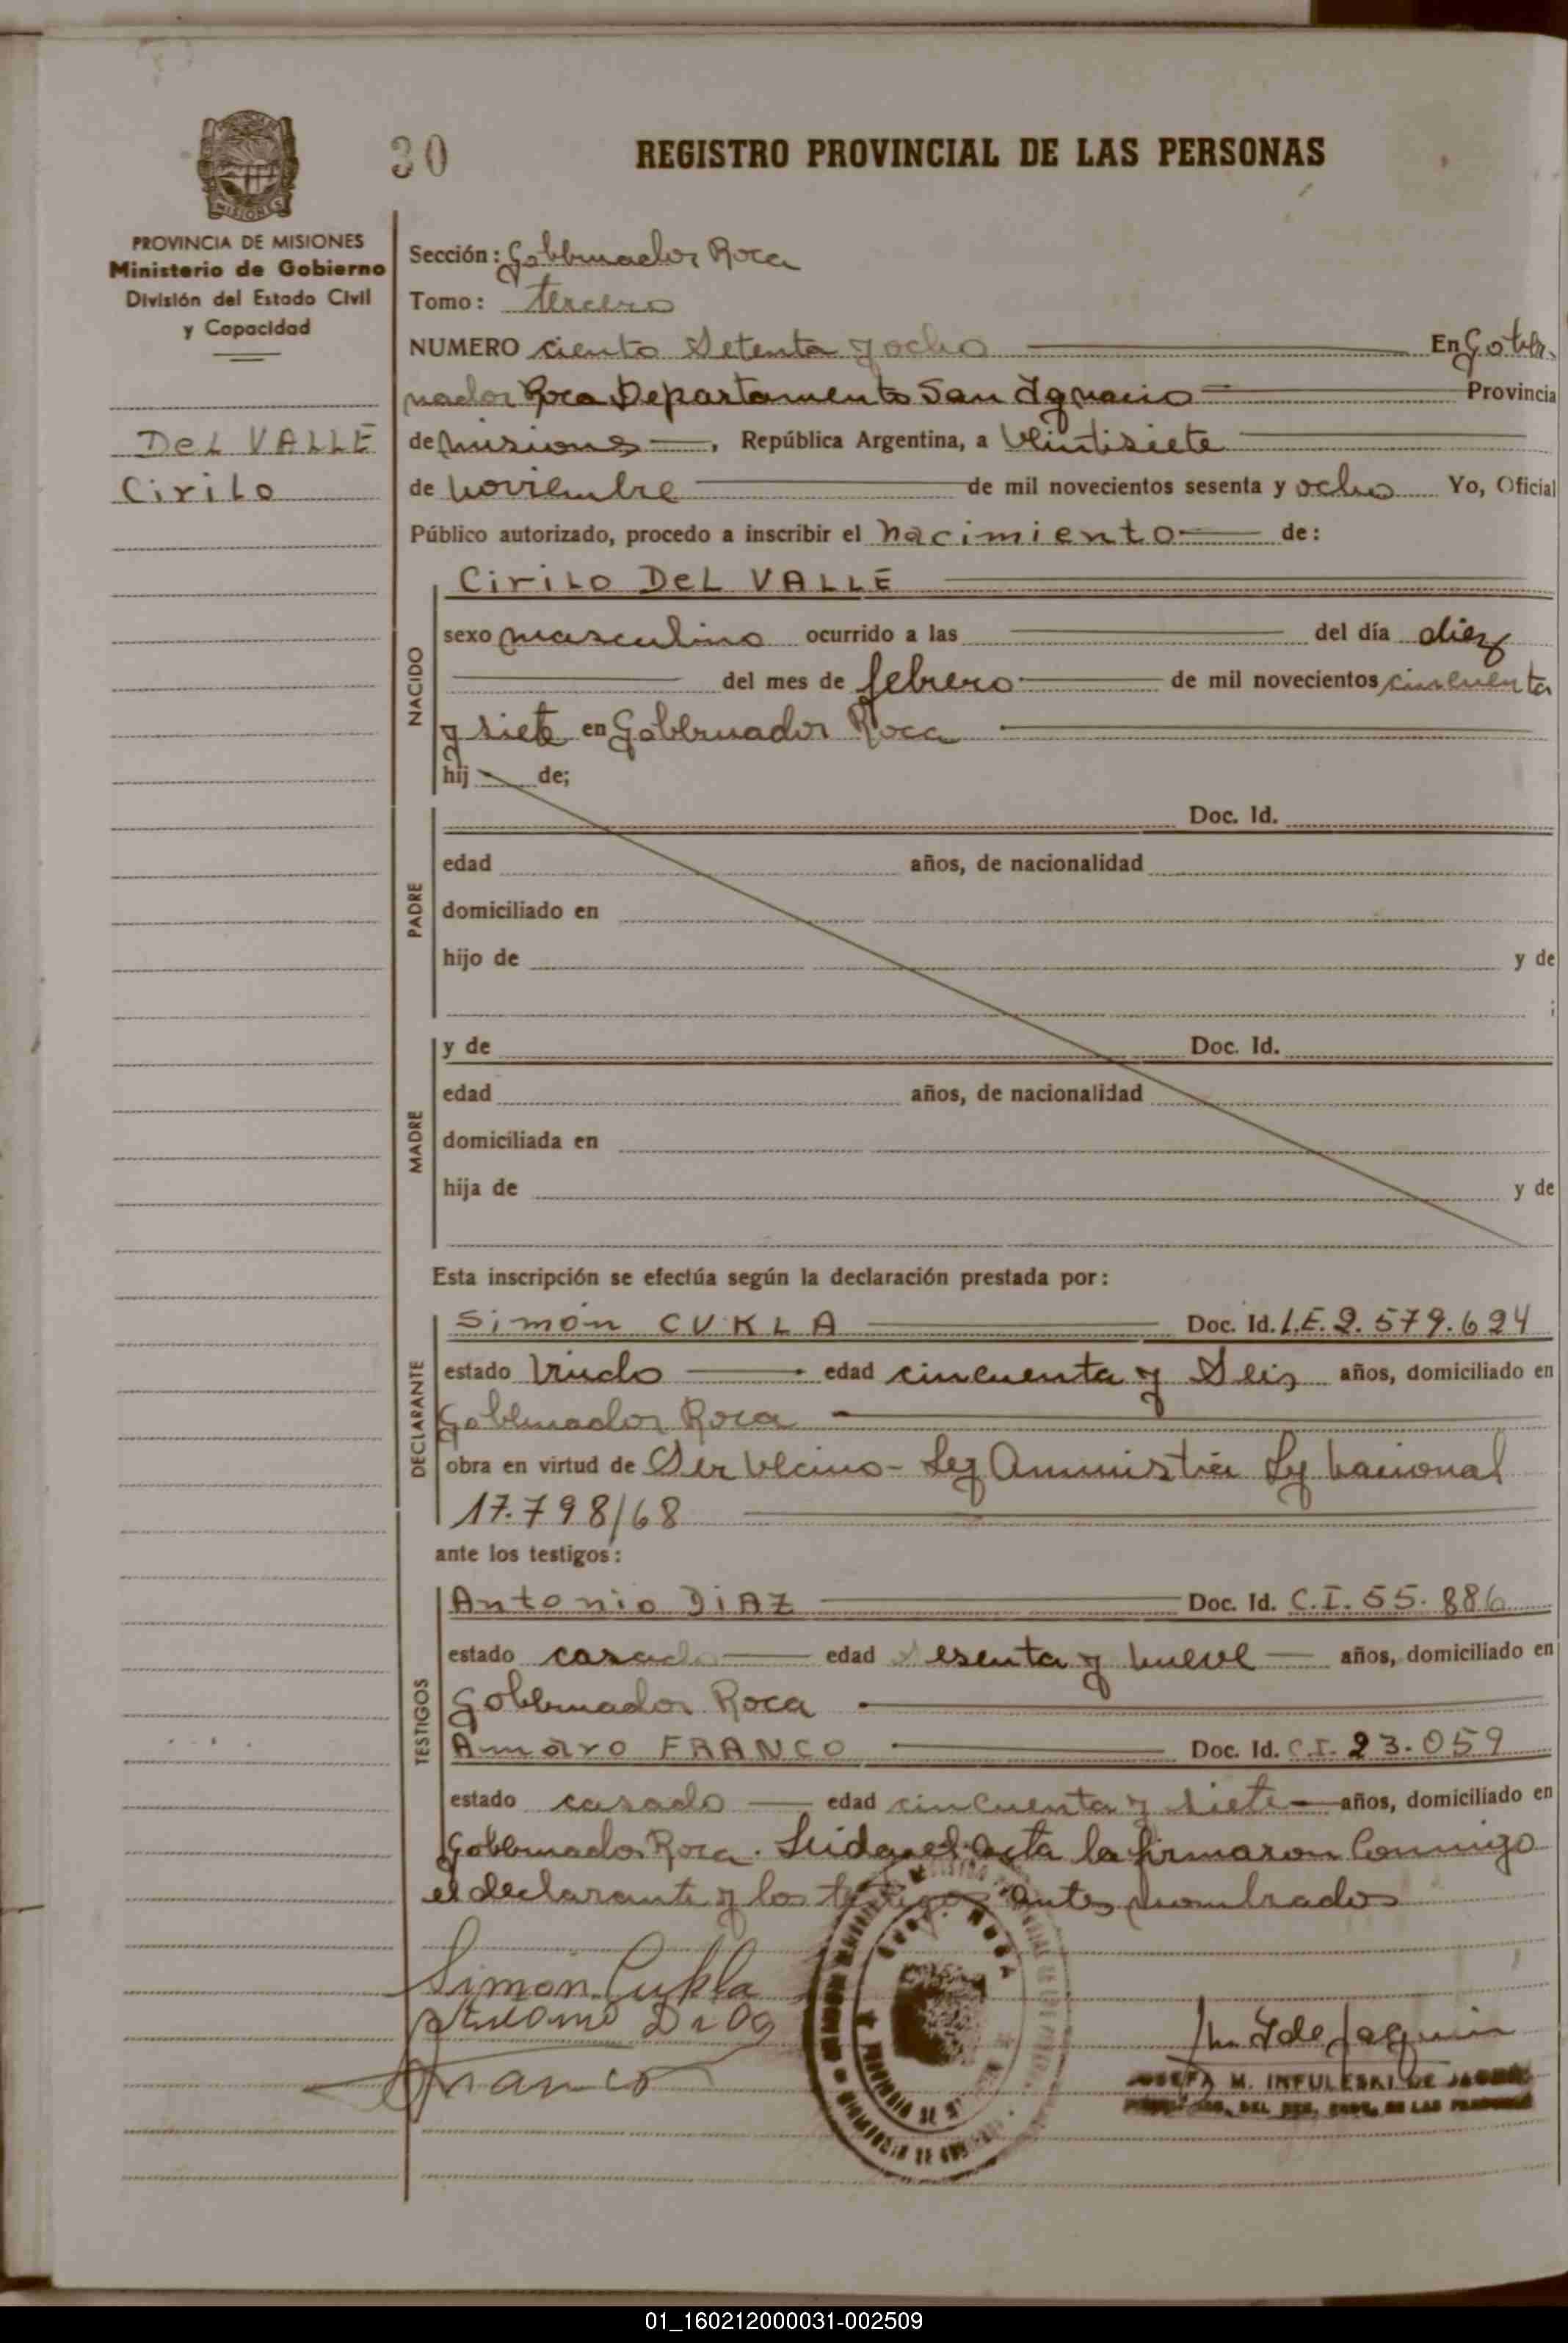 30
REGISTRO PROVINCIAL DE LAS PERSONAS
MISIONES
PROVINCIA DE MISIONES
Ministerio de Gobierno
División del Estado Civil
y Capacidad
DEL VALLE
Cirilo
Sección: Gobernador Roca
Tomo: tercero
NUMERO ciento setenta y ocho En Gober-
nador Roca Departamento San Ignacio Provincia
de Misiones, República Argentina, a veintisiete
de noviembre de mil novecientos sesenta y ocho Yo, Oficial
Público autorizado, procedo a inscribir el nacimiento de:
NACIDO
Cirilo DEL VALLE
sexo masculino ocurrido a las del día diez
del mes de febrero de mil novecientos cincuenta
y siete en Gobernador Roca
hij de;
PADRE
Doc. Id.
edad años, de nacionalidad
domiciliado en
hijo de y de
MADRE
y de Doc. Id.
edad años, de nacionalidad
domiciliada en
hija de y de
Esta inscripción se efectúa según la declaración prestada por:
DECLARANTE
Simón CUKLA Doc. Id. L.E. 2.579.624
estado viudo edad cincuenta y seis años, domiciliado en
Gobernador Roca
obra en virtud de ser vecino - Ley Amnistía Ley Nacional
17.798/68
ante los testigos:
TESTIGOS
Antonio DIAZ Doc. Id. C.I. 55.886
estado casado edad sesenta y nueve años, domiciliado en
Gobernador Roca
Amaro FRANCO Doc. Id. C.I. 23.059
estado casado edad cincuenta y siete años, domiciliado en
Gobernador Roca. Leida el acta la firmaron conmigo
el declarante y los testigos antes nombrados
Simon Cukla
Antonio Diaz
Franco
JOSEFA M. INFULESKI DE
01_160212000031-002509